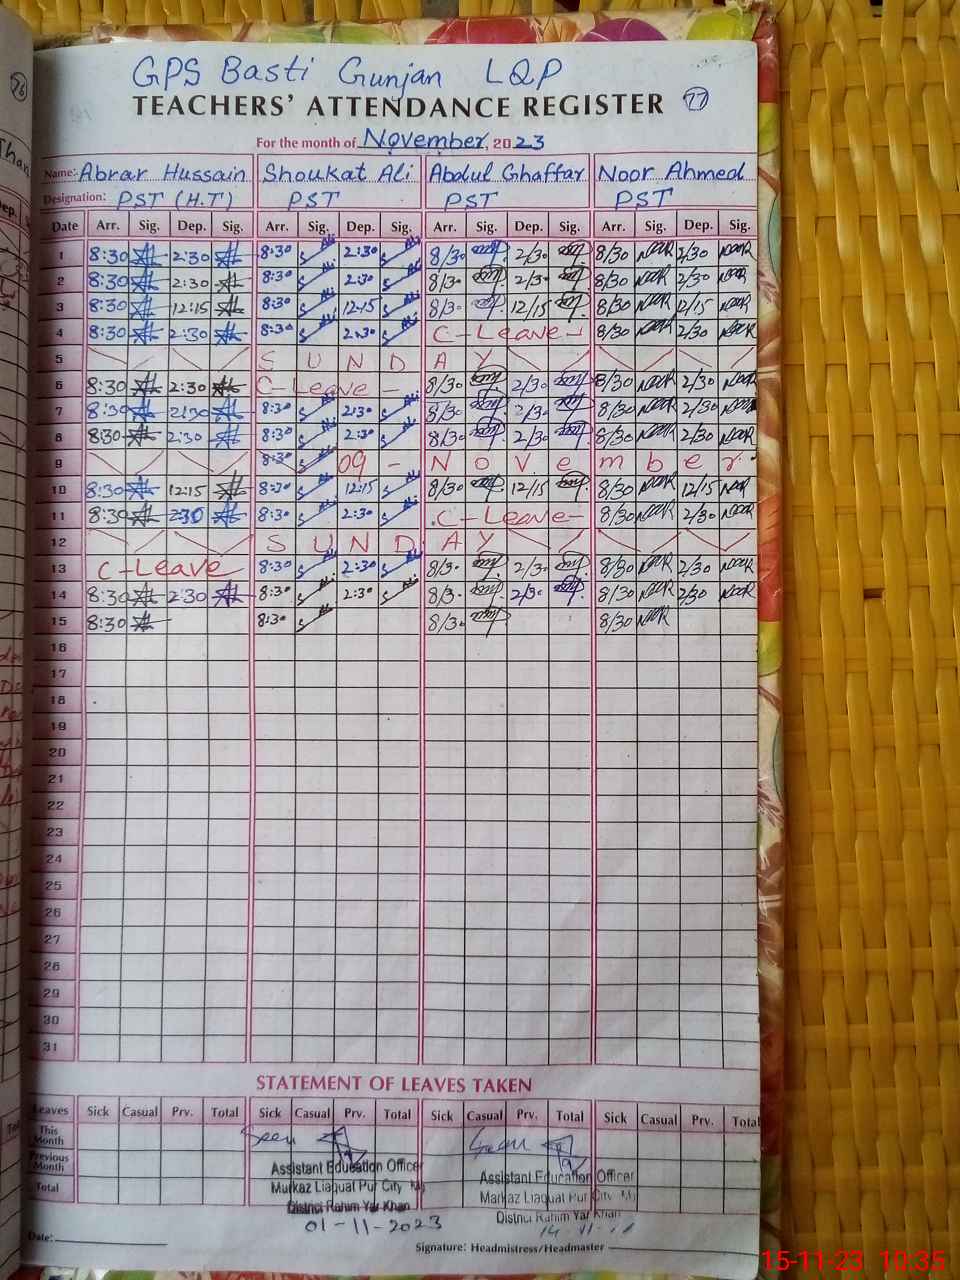 GPS Basti Gunjan LQP
TEACHERS' ATTENDANCE REGISTER 77
For the month of November, 2023
Name: Abrar Hussain Shoukat Ali Abdul Ghaffar Noor Ahmed
Designation: PST (H.T) PST PST PST
Date Arr. Sig. Dep. Sig. Arr. Sig. Dep. Sig. Arr. Sig. Dep. Sig. Arr. Sig. Dep. Sig.
1 8:30 2:30 8:30 2:30 8/30 2/30 8/30 Noor 2/30 Noor
2 8:30 2:30 8:30 2:30 8/30 2/30 8/30 Noor 2/30 Noor
3 8:30 12:15 8:30 12:15 8/30 12/15 8/30 Noor 12/15 Noor
4 8:30 2:30 8:30 2:30 C-Leave- 8/30 Noor 2/30 Noor
5 SUNDAY
6 8:30 2:30 C-Leave- 8/30 2/30 8/30 Noor 2/30 Noor
7 8:30 2:30 8:30 2:30 8/30 2/30 8/30 Noor 2/30 Noor
8 8:30 2:30 8:30 2:30 8/30 2/30 8/30 Noor 2/30 Noor
9 8:30 09 - November
10 8:30 12:15 8:30 12:15 8/30 12/15 8/30 Noor 12/15 Noor
11 8:30 2:30 8:30 2:30 C-Leave- 8/30 Noor 2/30 Noor
12 SUNDAY
13 C-Leave 8:30 2:30 8/30 2/30 8/30 Noor 2/30 Noor
14 8:30 2:30 8:30 2:30 8/30 2/30 8/30 Noor 2/30 Noor
15 8:30 8:30 8/30 8/30 Noor
16
17
18
19
20
21
22
23
24
25
26
27
28
29
30
31
STATEMENT OF LEAVES TAKEN
Leaves Sick Casual Prv. Total Sick Casual Prv. Total Sick Casual Prv. Total Sick Casual Prv. Total
This Month Seen Seen
Previous Month
Total
Assistant Education Officer
Markaz Liaquat Pur City
District Rahim Yar Khan
01-11-2023
Assistant Education Officer
Markaz Liaquat Pur City
District Rahim Yar Khan
Date:
Signature: Headmistress/Headmaster
15-11-23 10:35
76